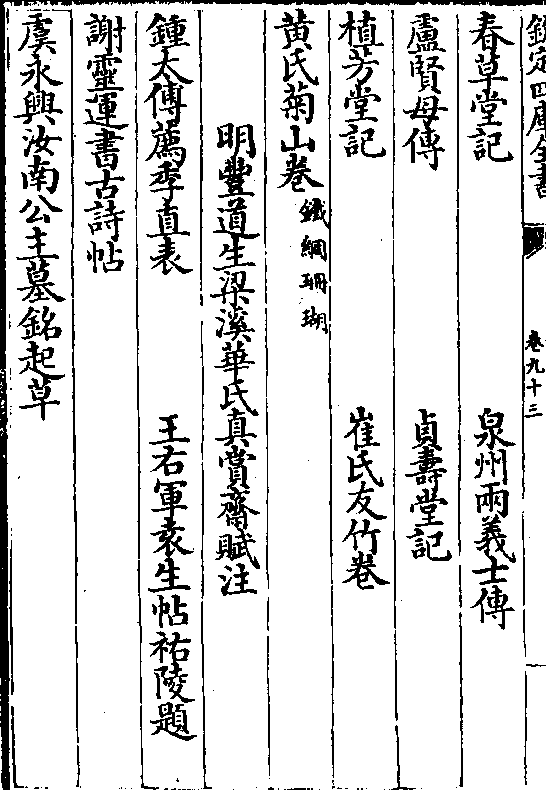 欽定四庫全書　卷九十三
春草堂記　泉州兩義士傳
盧賢母傳　貞壽堂記
植芳堂記　崔氏友竹卷
黃氏菊山卷鐵網珊瑚
明豐道生梁溪華氏真賞齋賦注
鍾太傅薦季直表　王右軍袁生帖祐陵題
謝靈運書古詩帖
虞永興汝南公主墓銘起草